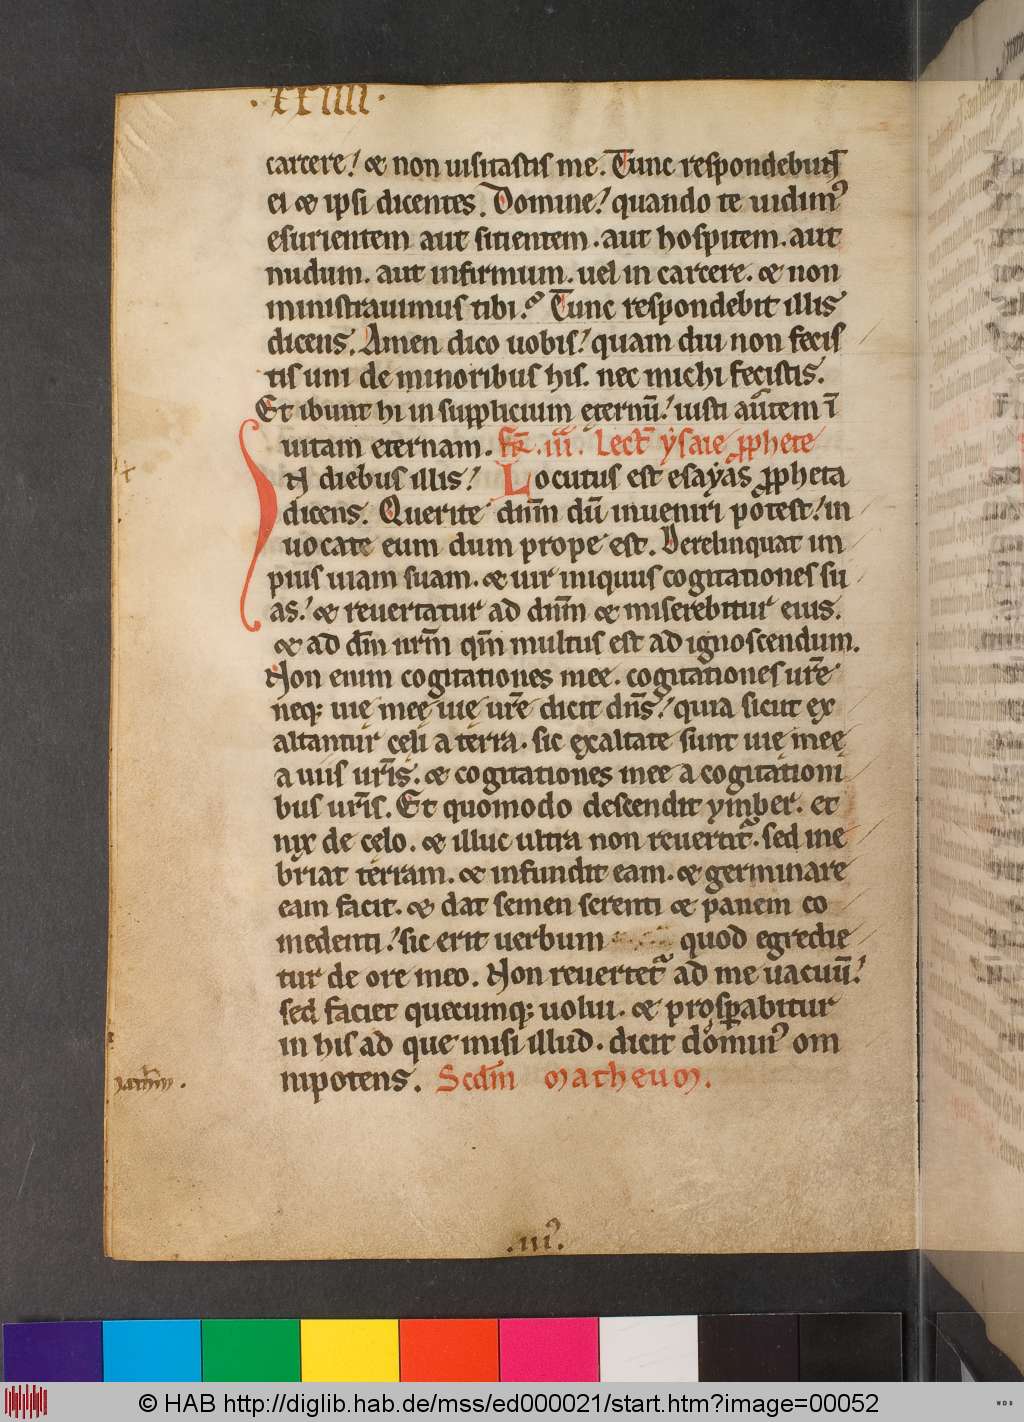 ·xxiiii·
carcere! & non uisitastis me. Tunc respondebunt
ei & ipsi dicentes. Domine! quando te uidimꝰ
esurientem aut sitientem. aut hospitem. aut
nudum. aut infirmum. uel in carcere. & non
ministrauimus tibi? Tunc respondebit illis
dicens. Amen dico uobis! quam diu non fecis
tis uni de minoribus his. nec michi fecistis.
Et ibunt hi in supplicium ęternū! iusti autem ī
uitam eternam. fr̄. iii. Lect̄ ysaie ꝓphete
IN diebus illis! Locutus est esayas ꝓpheta
dicens. Querite dn̄m dū inueniri potest! in
uocate eum dum prope est. Derelinquat im
pius uiam suam. & uir iniquus cogitationes su
as! & reuertatur ad dn̄m & miserebitur eius.
& ad dm̄ nr̄m qm̄ multus est ad ignoscendum.
Non enim cogitationes mee. cogitationes ur̄e
neqꝫ uię meę uię ur̄e dicit dn̄s! quia sicut ex
altantur cęli a terra. sic ęxaltate sunt uię meę
a uiis ur̄is. & cogitationes mee a cogitationi
bus ur̄is. Et quomodo descendit ymber. et
nix de cęlo. & illuc ultra non reuertit᷑. sed ine
briat terram. & infundit eam. & germinare
eam facit. & dat semen serenti & panem co
medenti! sic erit uerbum quod egredie
tur de ore meo. Non reuertet᷑ ad me uacuū!
sed faciet quecumqꝫ uolui. & prosꝑabitur
in his ad que misi illud. dicit dominꝰ om
nipotens. Scd̄m matheum.
.iiiꝰ.
© HAB http://diglib.hab.de/mss/ed000021/start.htm?image=00052